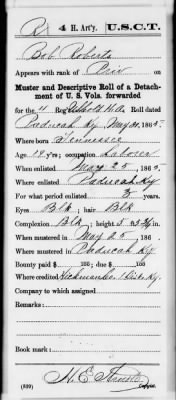 R | 4 H. Art'y. | U.S.C.T.
Bob Roberts
Appears with rank of Priv on
Muster and Descriptive Roll of a Detach-
ment of U. S. Vols. forwarded
for the 4 Reg't Roll dated
Paducah Ky May 31, 1865.
Where born Tennessee
Age 19 y'rs; occupation Laborer
When enlisted May 25, 186
Where enlisted Paducah Ky
For what period enlisted 3 years.
Eyes Blk; hair Blk
Complexion Blk; height 5 ft. in.
When mustered in May 25, 186
Where mustered in Paducah Ky
Bounty paid $ 100; due $ 100
Where credited Hickman Co. 1 Dist. Ky.
Company to which assigned
Remarks:
Book mark:
(339) Copyist.